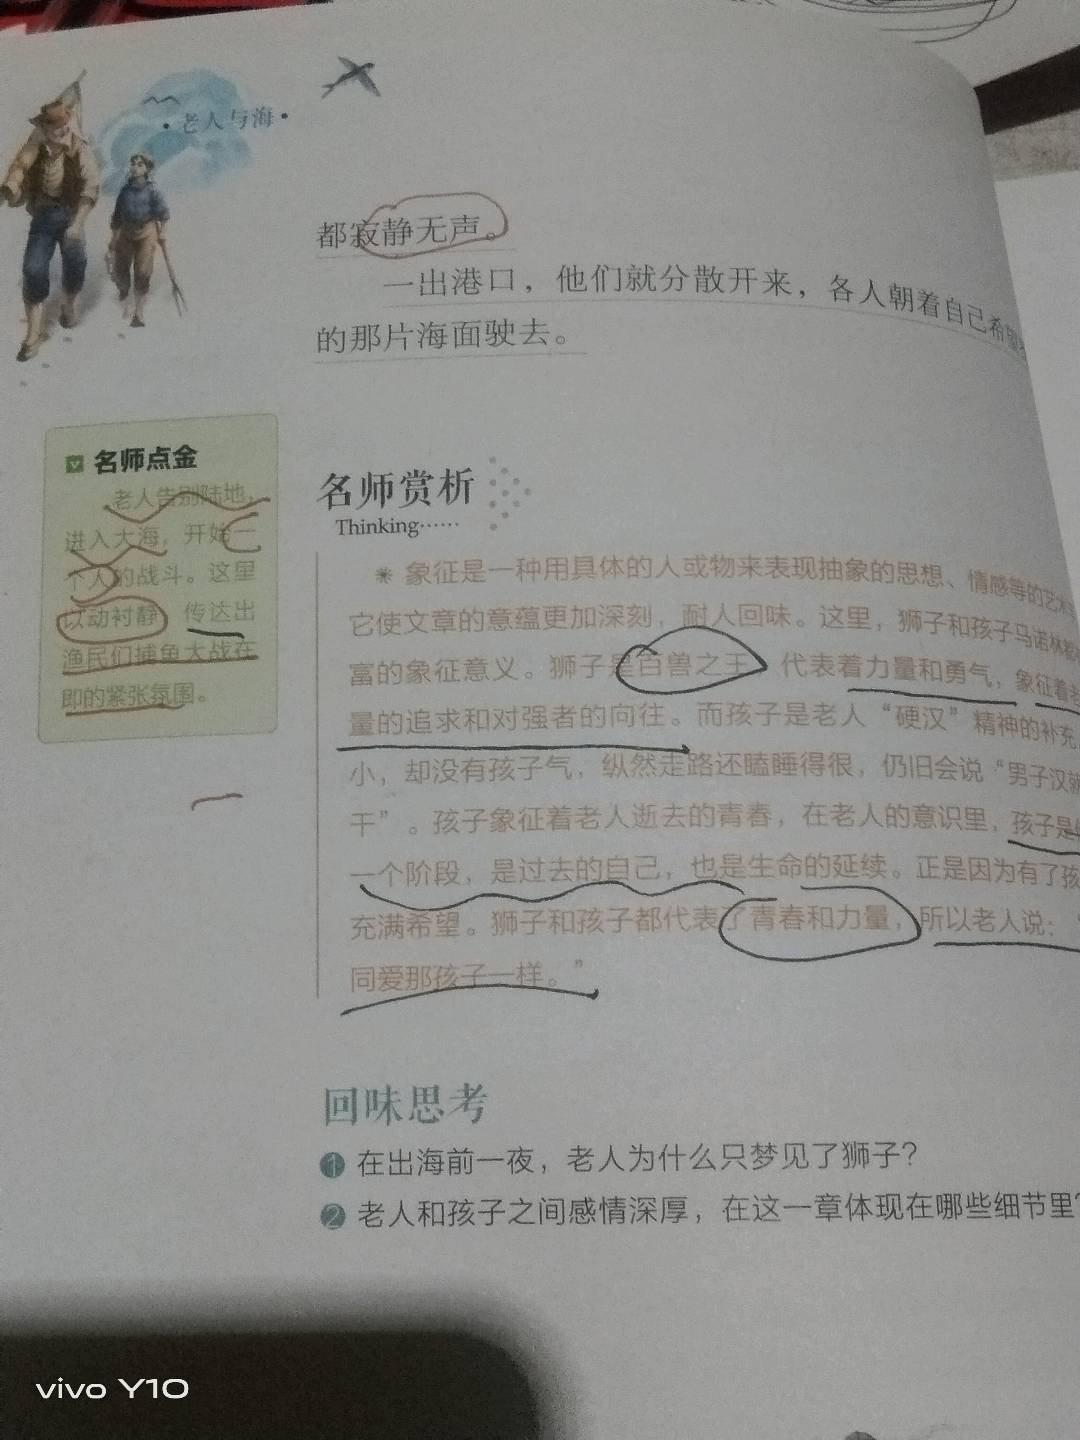 ·老人与海·
都寂静无声。
一出港口，他们就分散开来，各人朝着自己希望
的那片海面驶去。
名师点金
老人告别陆地，
进入大海，开始一
个人的战斗。这里
以动衬静，传达出
渔民们捕鱼大战在
即的紧张氛围。
名师赏析
Thinking……
象征是一种用具体的人或物来表现抽象的思想、情感等的艺术
它使文章的意蕴更加深刻，耐人回味。这里，狮子和孩子马诺林都
富的象征意义。狮子是百兽之王，代表着力量和勇气，象征着老
量的追求和对强者的向往。而孩子是老人“硬汉”精神的补充，
小，却没有孩子气，纵然走路还瞌睡得很，仍旧会说“男子汉就
干”。孩子象征着老人逝去的青春，在老人的意识里，孩子是
一个阶段，是过去的自己，也是生命的延续。正是因为有了孩
充满希望。狮子和孩子都代表了青春和力量，所以老人说：
同爱那孩子一样。”
回味思考
1 在出海前一夜，老人为什么只梦见了狮子？
2 老人和孩子之间感情深厚，在这一章体现在哪些细节里？
vivo Y10